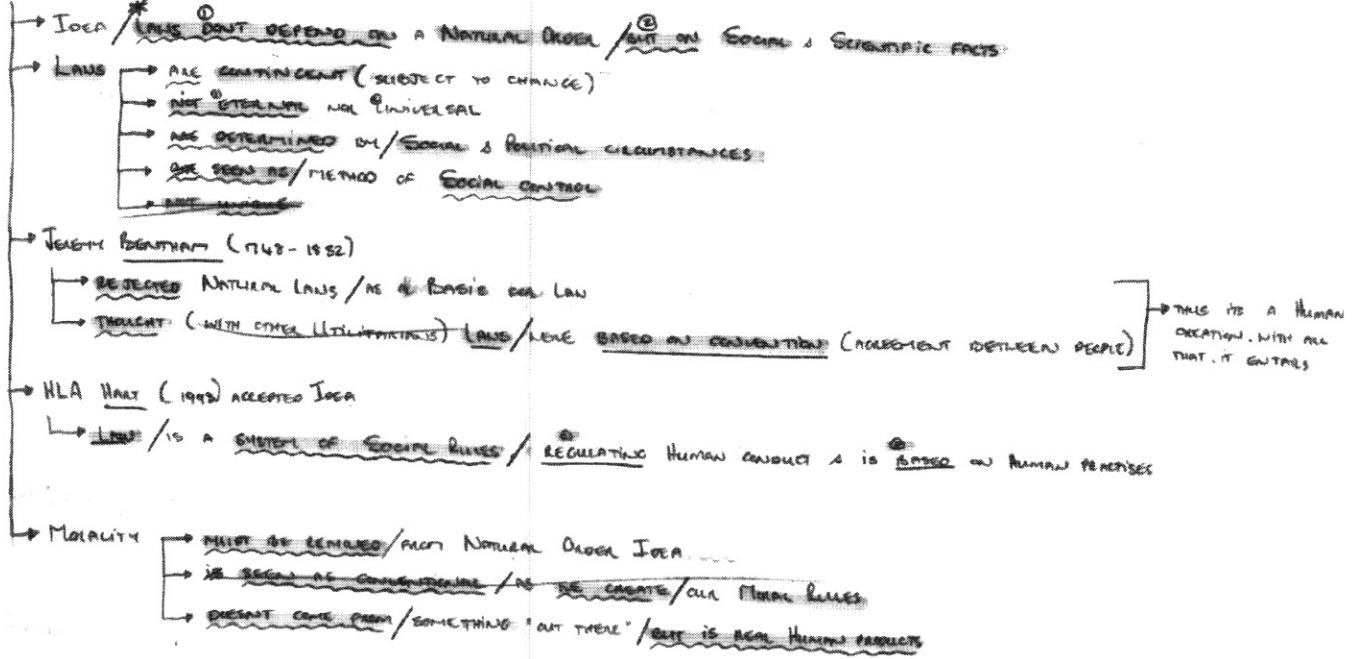 → IDEA / * LAWS ① DON'T DEPEND ON A NATURAL ORDER / ② BUT ON SOCIAL & SCIENTIFIC FACTS
→ LAWS → ARE CONTINGENT (SUBJECT TO CHANGE)
→ NOT ① ETERNAL NOR ② UNIVERSAL
→ ARE DETERMINED BY / SOCIAL & POLITICAL CIRCUMSTANCES
→ ARE SEEN AS / METHOD OF SOCIAL CONTROL
→ NOT UNIQUE
→ JEREMY BENTHAM (1748-1832)
→ REJECTED NATURAL LAWS / AS A BASIS FOR LAW
→ THOUGHT (WITH OTHER UTILITARIANS) LAWS / WERE BASED ON CONVENTION (AGREEMENT BETWEEN PEOPLE)
→ THUS ITS A HUMAN
CREATION. WITH ALL
THAT. IT ENTAILS
→ HLA HART ACCEPTED IDEA
→ LAW / IS A SYSTEM OF SOCIAL RULES / ① REGULATING HUMAN CONDUCT & IS ② BASED ON HUMAN PRACTISES
→ MORALITY → MUST BE REMOVED / FROM NATURAL ORDER IDEA
→ IS SEEN AS CONVENTIONAL / AS WE CREATE / OUR MORAL RULES
→ DOESNT COME FROM / SOMETHING "OUT THERE" / BUT IS REAL HUMAN PRODUCTS